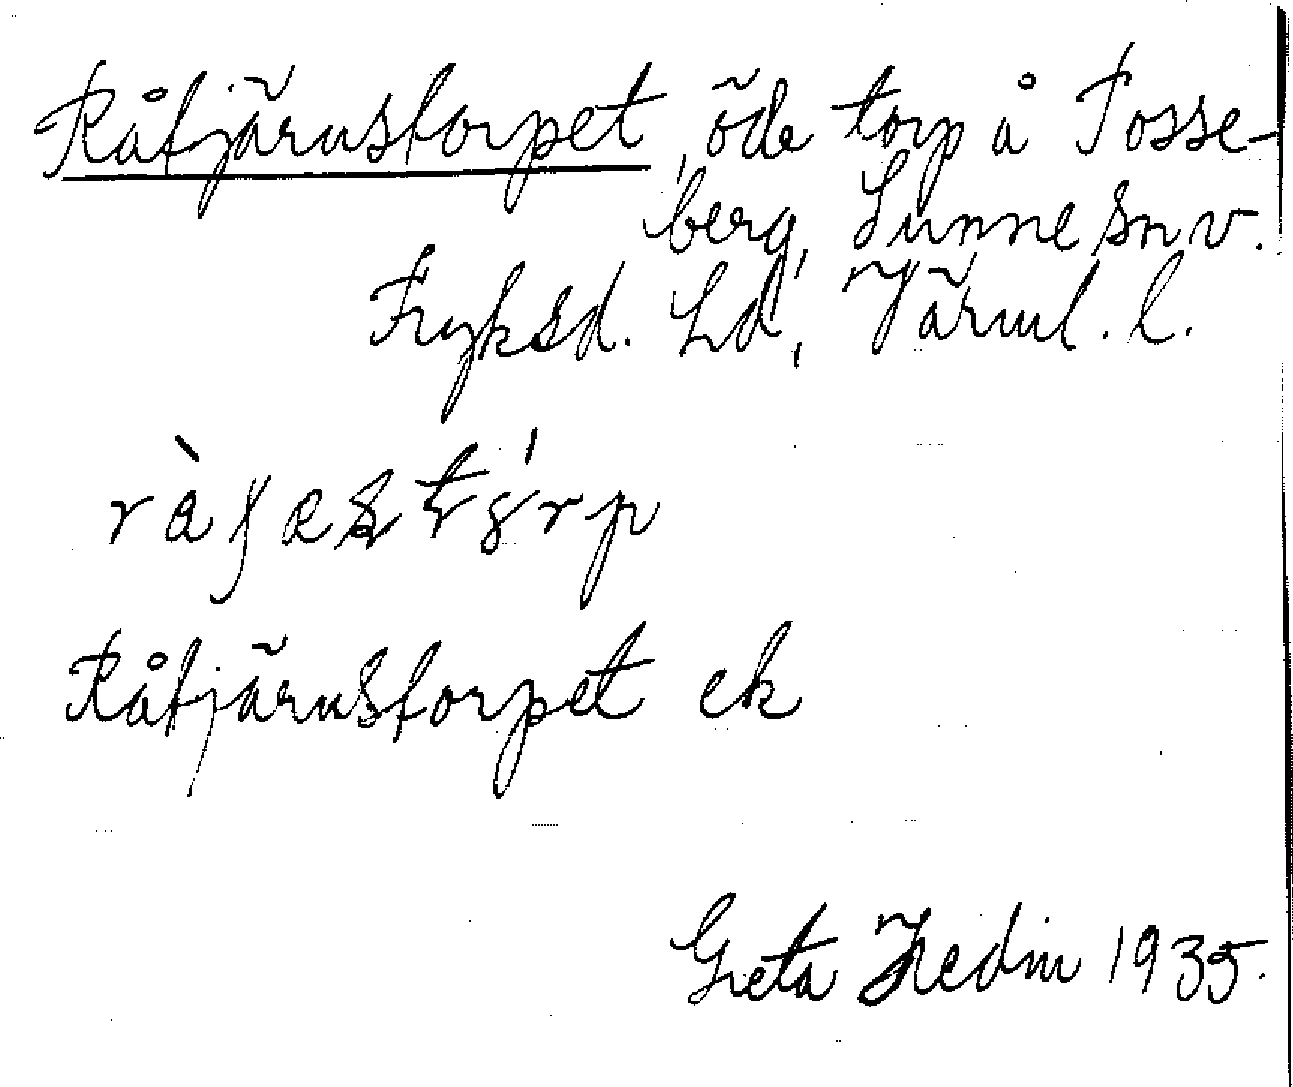 Råtjärnstorpet, öde torp å Tosse-
berg, Sunne sn v.
Fryksd. hd, Värml. l.
Råtjärnstorpet ek
Greta Hedin 1935.